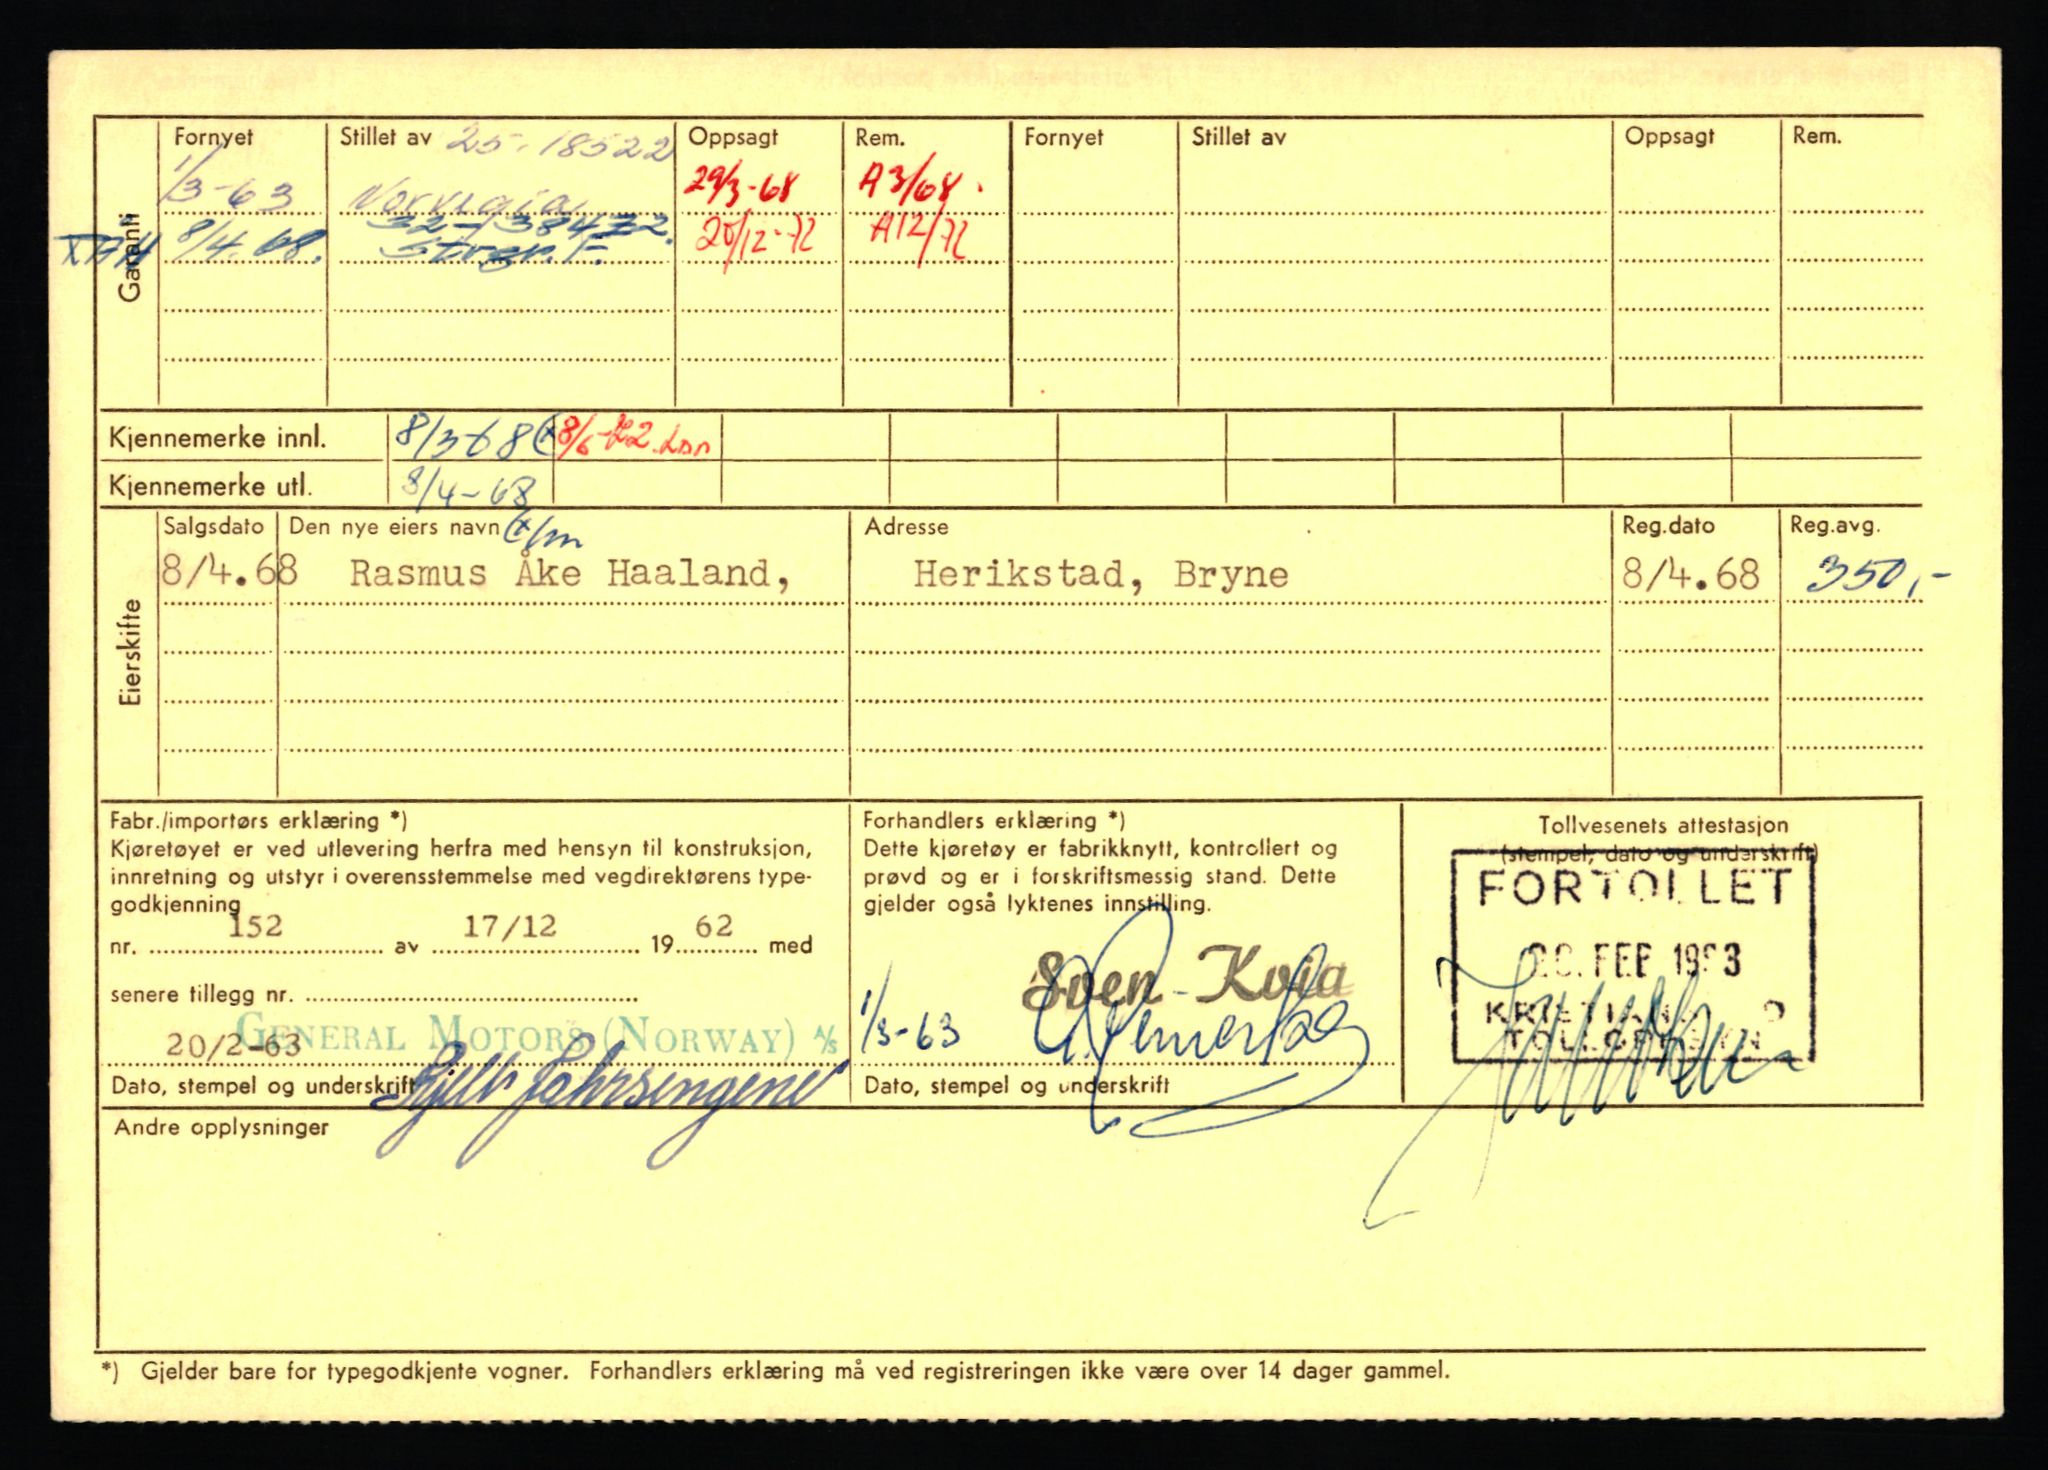 Garanti
Fornyet Stillet av 25-18522 Oppsagt Rem. Fornyet Stillet av Oppsagt Rem.
1/3-63 Norvegia 29/3-68 A3/68.
8/4.68. 32-138472. 20/12-72 A12/72
Storbr. F.
Kjennemerke innl. 8/3-68 (x 8/6-72
Kjennemerke utl. 8/4-68
Eierskifte
Salgsdato Den nye eiers navn Adresse Reg.dato Reg.avg.
8/4.68 Rasmus Åke Haaland, Herikstad, Bryne 8/4.68 350,-
Fabr./importørs erklæring *)
Kjøretøyet er ved utlevering herfra med hensyn til konstruksjon,
innretning og utstyr i overensstemmelse med vegdirektørens type-
godkjenning
nr. 152 av 17/12 19 62 med
senere tillegg nr.
GENERAL MOTORS (NORWAY) A/S
20/2-63
Dato, stempel og underskrift
Forhandlers erklæring *)
Dette kjøretøy er fabrikknytt, kontrollert og
prøvd og er i forskriftsmessig stand. Dette
gjelder også lyktenes innstilling.
Sven Kvia
1/3-63
Dato, stempel og underskrift
Tollvesenets attestasjon
(stempel, dato og underskrift)
FORTOLLET
FEB 1963
Andre opplysninger
*) Gjelder bare for typegodkjente vogner. Forhandlers erklæring må ved registreringen ikke være over 14 dager gammel.